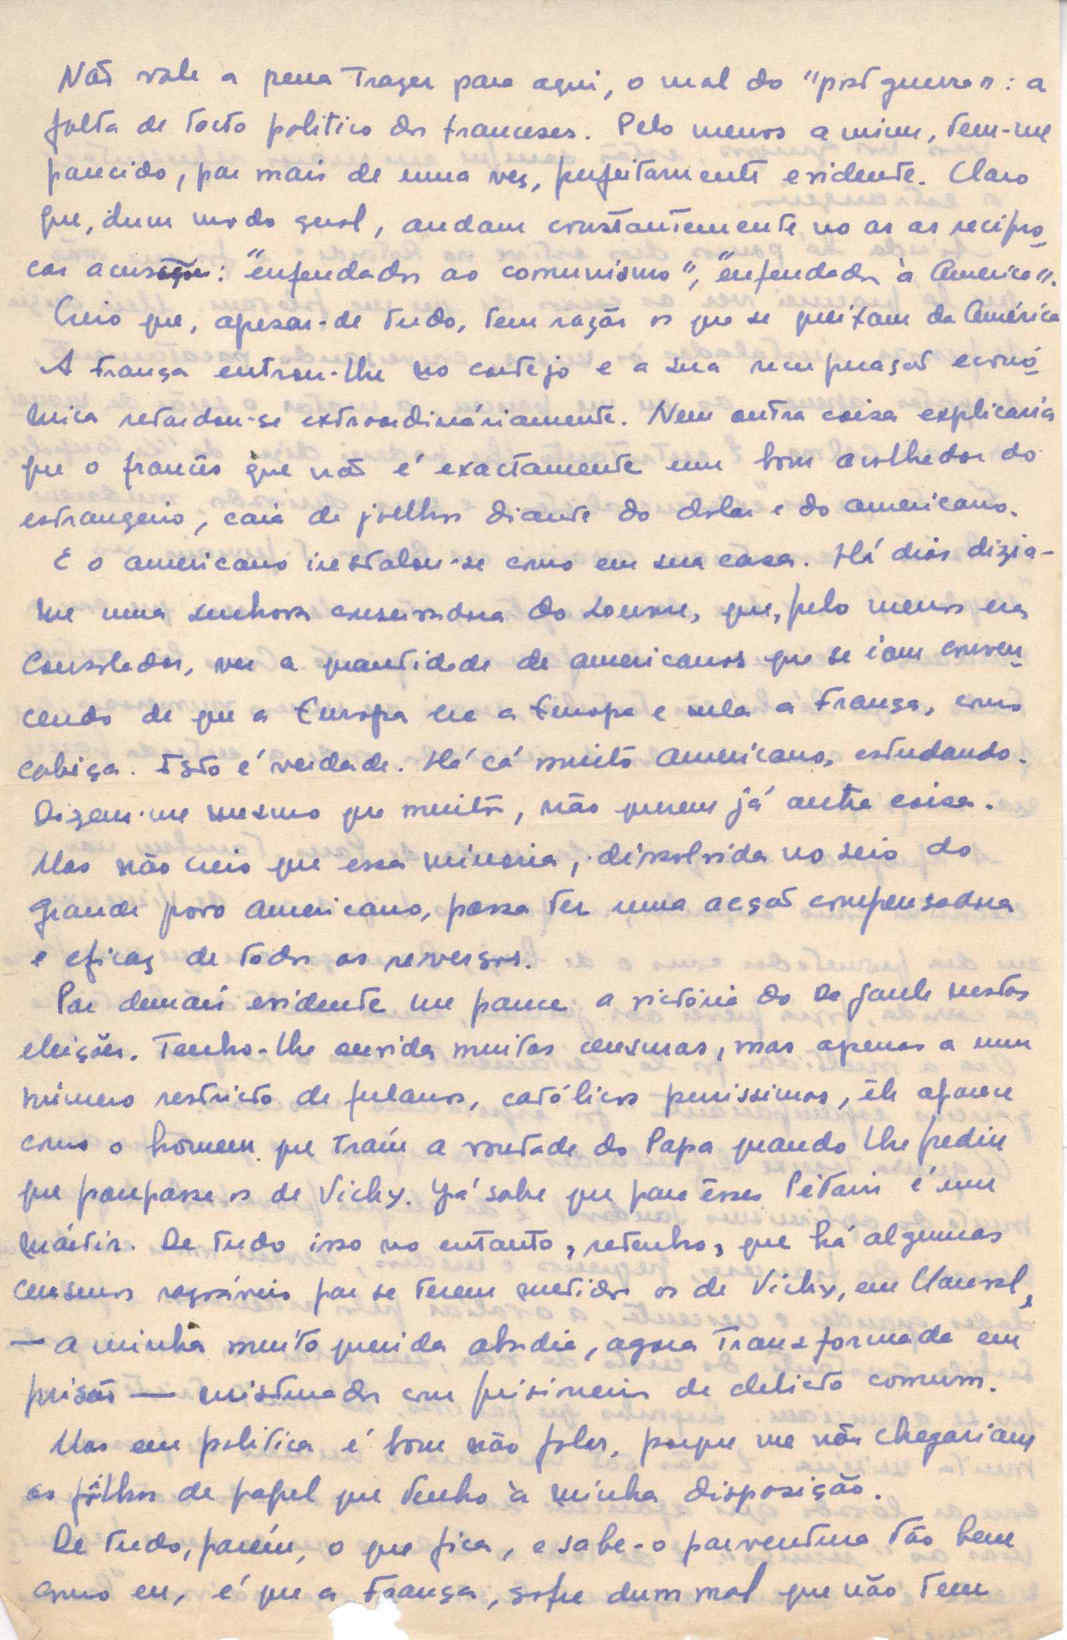 Não vale a pena trazer para aqui, o mal do "post guerra": a
falta de tacto politico dos franceses. Pelo menos a mim, tem-me
parecido, par mais de uma vez, perfeitamente evidente. Claro
que, dum modo geral, andam constantemente no ar as recipro-
cas acusações: "enfeudados ao comunismo", "enfeudados à America".
Creio que, apesar-de tudo, tem razão os que se queixam da América
A França entrou-lhe no cortejo e a sua recuperação econó-
mica retardou-se extraordináriamente. Nem outra coisa explicaria
que o francês que não é exactamente um bom acolhedor do
estrangeiro, caia de joelhos diante do dolar e do americano.
E o americano instalou-se como em sua casa. Há dias dizia-
me uma senhora conservadora do Louvre, que, pelo menos era
consolador, ver a quantidade de americanos que se iam conven-
cendo de que a Europa era a Europa e nela a França, como
cabeça. Isto é verdade. Há cá muito americano, estudando.
Dizem-me mesmo que muitos, não querem já outra coisa.
Mas não creio que essa minoria, dissolvida no seio do
grande povo americano, possa ter uma acção compensadora
e eficaz de todos os reversos.
Par demais evidente me parece a victória do De Gaule nestas
eleições. Tenho-lhe ouvido muitas censuras, mas apenas a um
número restricto de fulanos, católicos puríssimos, êle aparece
como o homem que traíu a vontade do Papa quando lhe pediu
que poupasse os de Vichy. Já sabe que para êsses Pétain é um
mártir. De tudo isso no entanto, retenho, que há algumas
censuras razoáveis par se terem metidos os de Vichy, em Clairval,
— a minha muito querida abadia, agora transformada em
prisão — misturados com prisioneiros de delicto comum.
Mas em politica é bom não falar, porque me não chegariam
as fôlhas de papel que tenho à minha disposição.
De tudo, parém, o que fica, e sabe-o parventura tão bem
como eu, é que a França, sofre dum mal que não tem